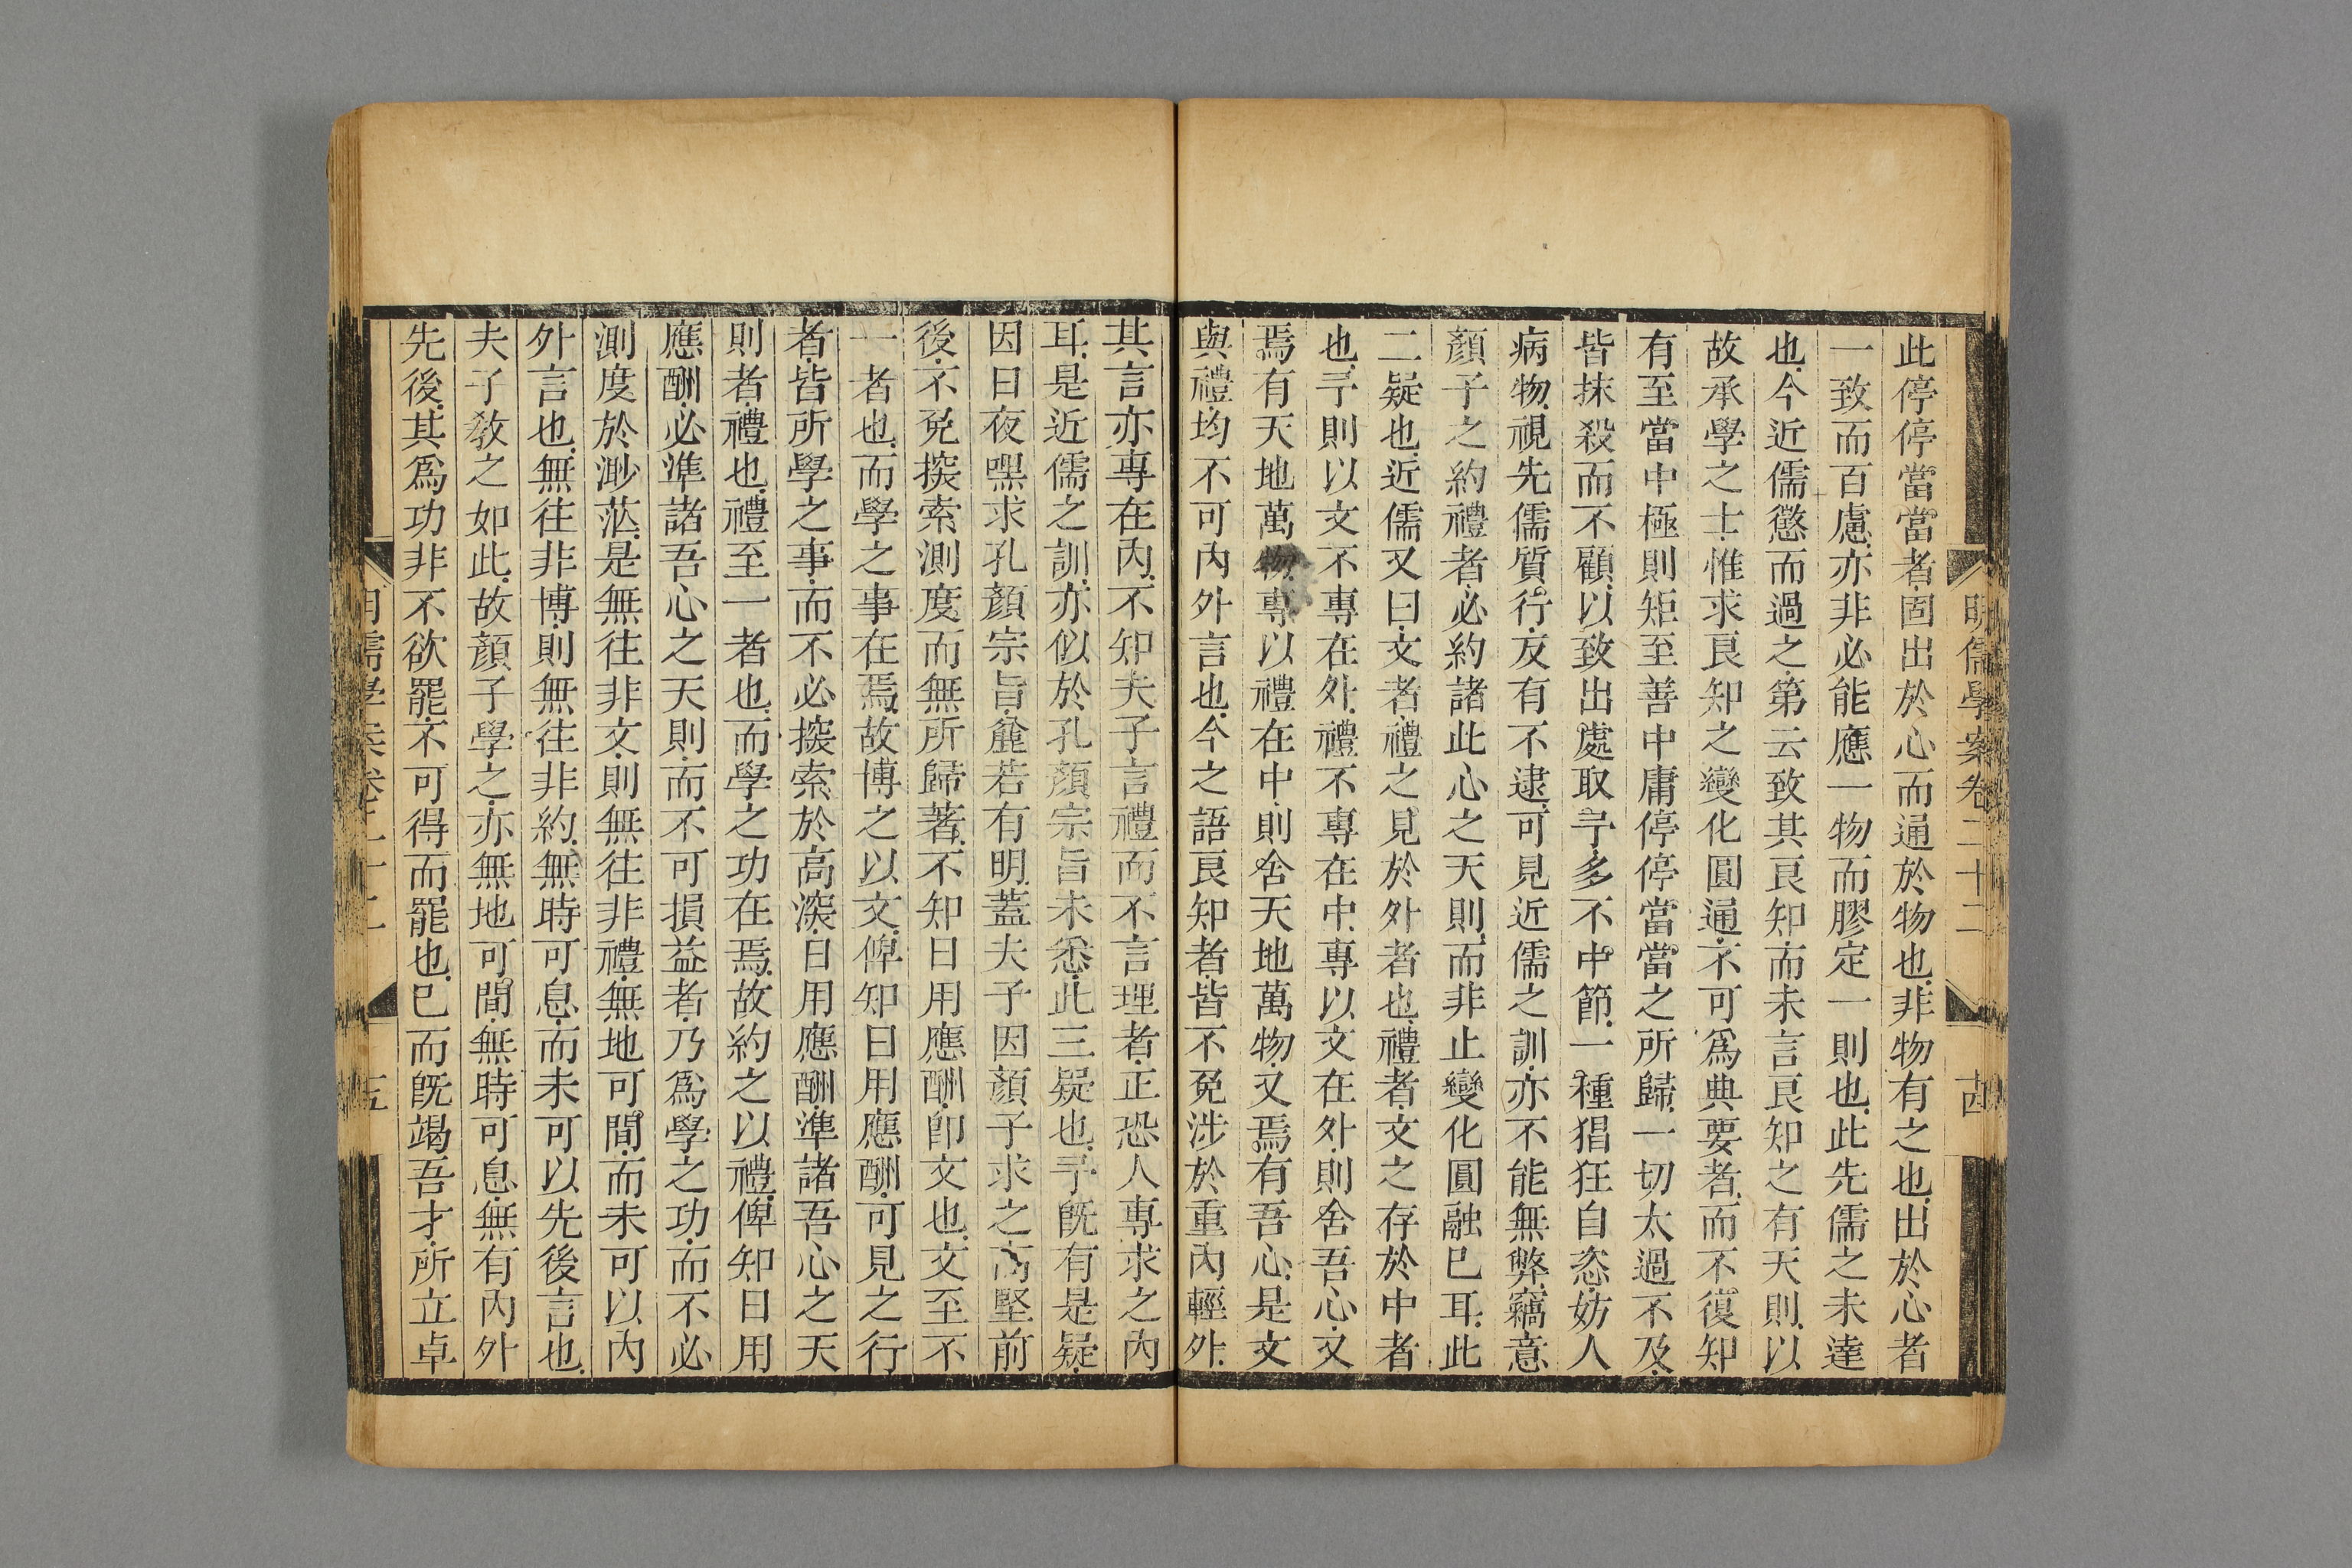 明儒學案卷二十二
十四
此停停當當者固出於心而通於物也非物有之也出於心者
一致而百慮亦非必能應一物而膠定一則也此先儒之未達
也今近儒懲而過之第云致其良知而未言良知之有天則以
故承學之士惟求良知之變化圓通不可爲典要者而不復知
有至當中極則矩至善中庸停停當當之所歸一切太過不及
皆抹殺而不顧以致出處取予多不中節一種猖狂自恣妨人
病物視先儒質行反有不逮可見近儒之訓亦不能無弊竊意
顏子之約禮者必約諸此心之天則而非止變化圓融已耳此
二疑也近儒又曰文者禮之見於外者也禮者文之存於中者
也予則以文不專在外禮不專在中專以文在外則舍吾心又
焉有天地萬物專以禮在中則舍天地萬物又焉有吾心是文
與禮均不可內外言也今之語良知者皆不免涉於重內輕外
其言亦專在內不知夫子言禮而不言理者正恐人專求之內
耳是近儒之訓亦似於孔顏宗旨未悉此三疑也予旣有是疑
因日夜嘿求孔顏宗旨麄若有明蓋夫子因顏子求之高堅前
後不免探索測度而無所歸著不知日用應酬卽文也文至不
一者也而學之事在焉故博之以文俾知日用應酬可見之行
者皆所學之事而不必探索於高深日用應酬準諸吾心之天
則者禮也禮至一者也而學之功在焉故約之以禮俾知日用
應酬必準諸吾心之天則而不可損益者乃爲學之功而不必
測度於渺茫是無往非文則無往非禮無地可間而未可以內
外言也無往非博則無往非約無時可息而未可以先後言也
夫子敎之如此故顏子學之亦無地可間無時可息無有內外
先後其爲功非不欲罷不可得而罷也已而旣竭吾才所立卓